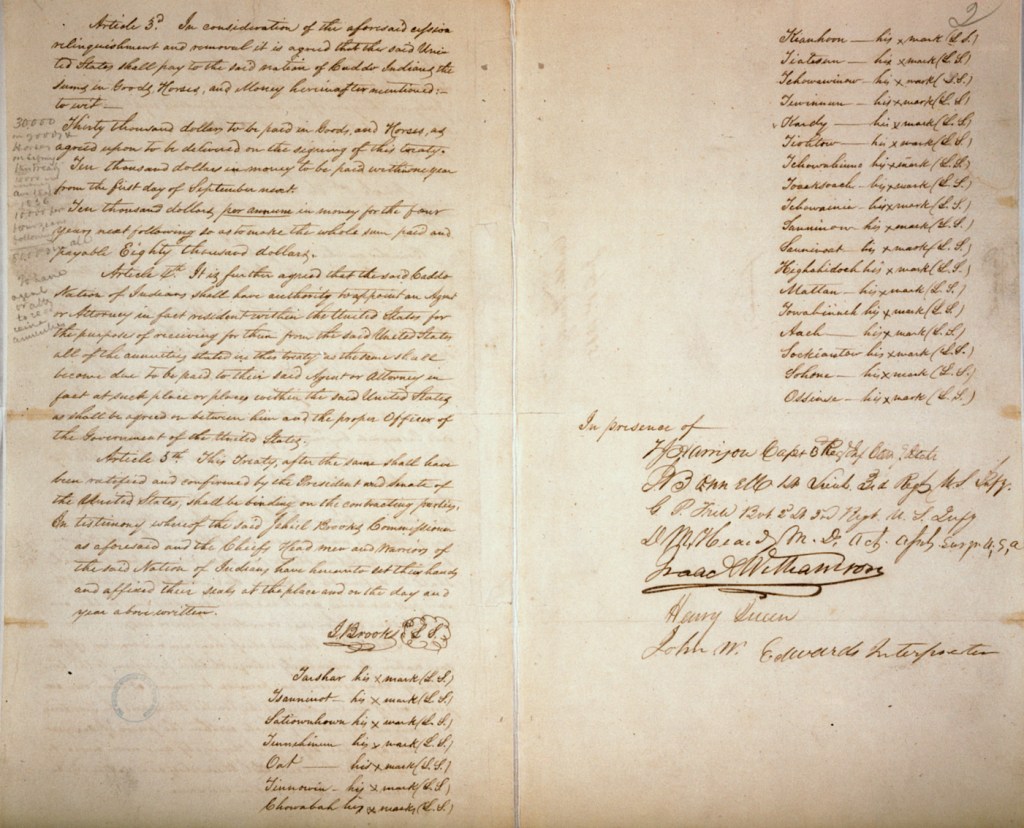 Article 3d. In consideration of the aforesaid cession
relinquishment and removal it is agreed that the said Uni-
ted States shall pay to the said nation of Caddo Indians the
sums in Goods, Horses, and Money hereinafter mentioned:-
to wit —
Thirty thousand dollars to be paid in Goods, and Horses, as
agreed upon to be delivered on the signing of this treaty.
Ten thousand dollars in money to be paid within one year
from the first day of September next.
Ten thousand dollars per annum in money for the four
years next following so as to make the whole sum paid and
payable Eighty thousand dollars.
Article 4th. It is further agreed that the said Caddo
Nation of Indians shall have authority to appoint an Agent
or Attorney in fact resident within the United States for
the purpose of receiving for them from the said United States
all of the annuities stated in this treaty as the same shall
become due to be paid to their said Agent or Attorney in
fact at such place or places within the said United States
as shall be agreed on between him and the proper Officer of
the Government of the United States.
Article 5th This Treaty, after the same shall have
been ratified and confirmed by the President and Senate of
the United States, shall be binding on the contracting parties.
In testimony whereof the said Jehiel Brooks, Commissioner
as aforesaid and the Chiefs Head men and Warriors of
the said Nation of Indians have hereunto set their hands
and affixed their seals at the place and on the day and
year above written.
J. Brooks L. S.
Tarshar his x mark (L. S.)
Tsauninot — his x mark (L. S.)
Satiownhown his x mark (L. S.)
Tennehinun his x mark (L. S.)
Oat — his x mark (L. S.)
Tinnowin — his x mark (L. S.)
Chowabah his x mark (L. S.)
30,000
in goods &
Horses
on signing
10000 for
four years
following
agent
2
Kianhoon — his x mark (L. S.)
Tiatesun — his x mark (L. S.)
Tehowawinow — his x mark (L. S.)
Tewinnun — his x mark (L. S.)
Kardy — his x mark (L. S.)
Tiohtow — his x mark (L. S.)
Tehowahinno his x mark (L. S.)
Tooeksoach — his x mark (L. S.)
Tehowainia — his x mark (L. S.)
Sauninow — his x mark (L. S.)
Saunivoat his x mark (L. S.)
Highahidoch his x mark (L. S.)
Mattan — his x mark (L. S.)
Towabinneh his x mark (L. S.)
Aach — his x mark (L. S.)
Sookiantow his x mark (L. S.)
Sohone — his x mark (L. S.)
Ossinse — his x mark (L. S.)
In presence of
Harrison Capt 3 Reg
Bonnell 1st Lieut. 3d Regt U S Infy.
Bvt 2 Lt 3rd Regt U. S. Infy
D. M. Heard, M. D. Act. Asst. Surgn. U. S. A
Isaac Williamson
Henry Queen
John W. Edwards Interpreter